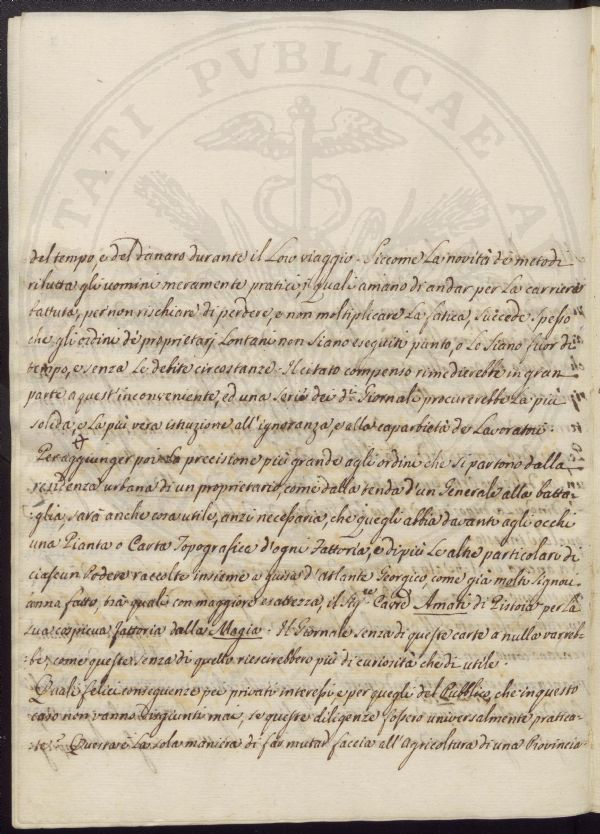 TATI PVBLICAE A
del tempo, e del danaro durante il Loro viaggio. Siccome La novità de metodi
rilutta gli uomini meramente pratici, i quali amano di andar per La carriera
battuta, per non rischiare di perdere, e non moltiplicare La fatica, Succede Spesso
che gli ordini de proprietarj Lontani non siano eseguiti punto, o Lo Siano fuor di
tempo, e senza Le debite circostanze. Il citato compenso rimedierebbe in gran
parte a quest'inconveniente, ed una Serie dei d.i Giornali procurerebbe La più
solida, e La più vera istuzione all'ignoranza, e alla caparbietà de Lavoratori.
Per aggiunger poi precisione più grande agli ordini che si partono dalla
residenza urbana di un proprietario, come dalla tenda d'un Generale alla batta-
:glia, sarà anche cosa utile, anzi necessaria, che quegli abbia davanti agli occhi
una Pianta o Carta Topografica d'ogni Fattoria, e di più Le altre particolari di
ciascun Podere raccolte insieme a guisa d'atlante Georgico, come già molti Signori
anno fatto, trà quali con maggiore esattezza il Cav.re Amati di Pistoia per La
sua cospicua fattoria dalla Magia. Il Giornale senza di queste carte a nulla varreb-
:be, come queste senza di quello riescirebbero più di curiosità che di utile.
Quali felici conseguenze pei privati interessi e per quegli del Pubblico, che in questo
caso non vanno disgiunti mai, se queste diligenze fossero universalmente pratica-
:te? Questa è La sola maniera di far mutar faccia all'Agricoltura di una Provincia.